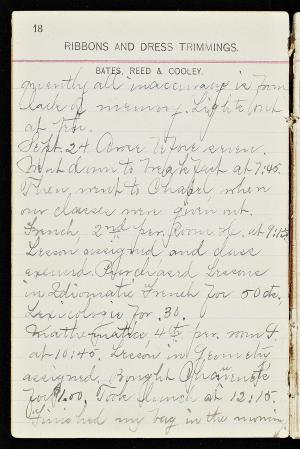 18
RIBBONS AND DRESS TRIMMINGS.
BATES, REED & COOLEY.
quently all inaccuracy is from
lack of memory. Lights out
at ten.
Sept. 24 Arose before seven.
Went down to breakfast at 7:45.
Then, went to Chapel when
our classes were given out.
French, 2nd per. Room at 9:15.
Lesson assigned and class
excused. Purchased Lessons
in Idiomatic French for 50 cts.
Lexicologie for .30.
Mathematics, 4th per. room 4.
at 10:45. Lesson in Geometry
assigned. Bought Chauvenet's
for $1.00. Took lunch at 12:15.
Finished my bag in the morning